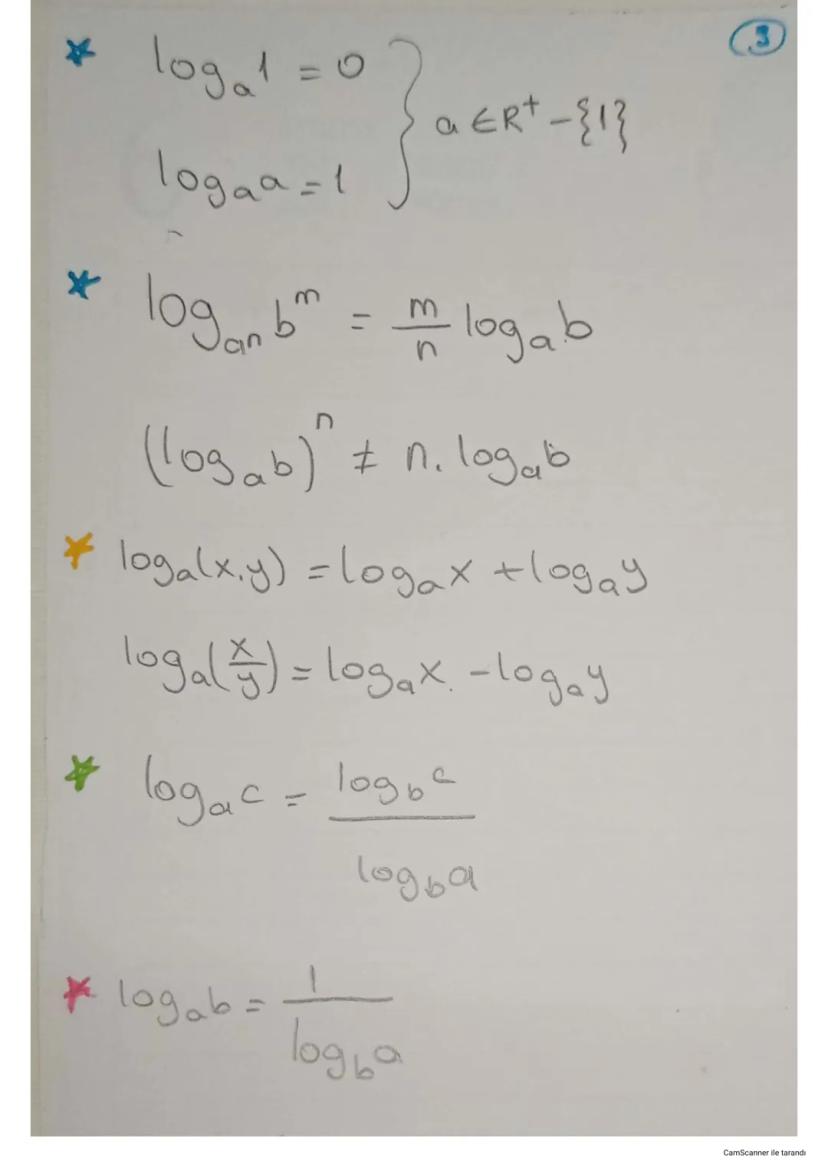 3
* logₐ1 = 0 } a ∈ R⁺ - {1}
logₐa = 1
* logₐₙ bᵐ = m/n logₐb
(logₐb)ⁿ ≠ n. logₐb
* logₐ(x.y) = logₐx + logₐy
logₐ(x/y) = logₐx. - logₐy
* logₐc = log_b c / log_b a
* logₐb = 1 / log_b a
CamScanner ile tarandı